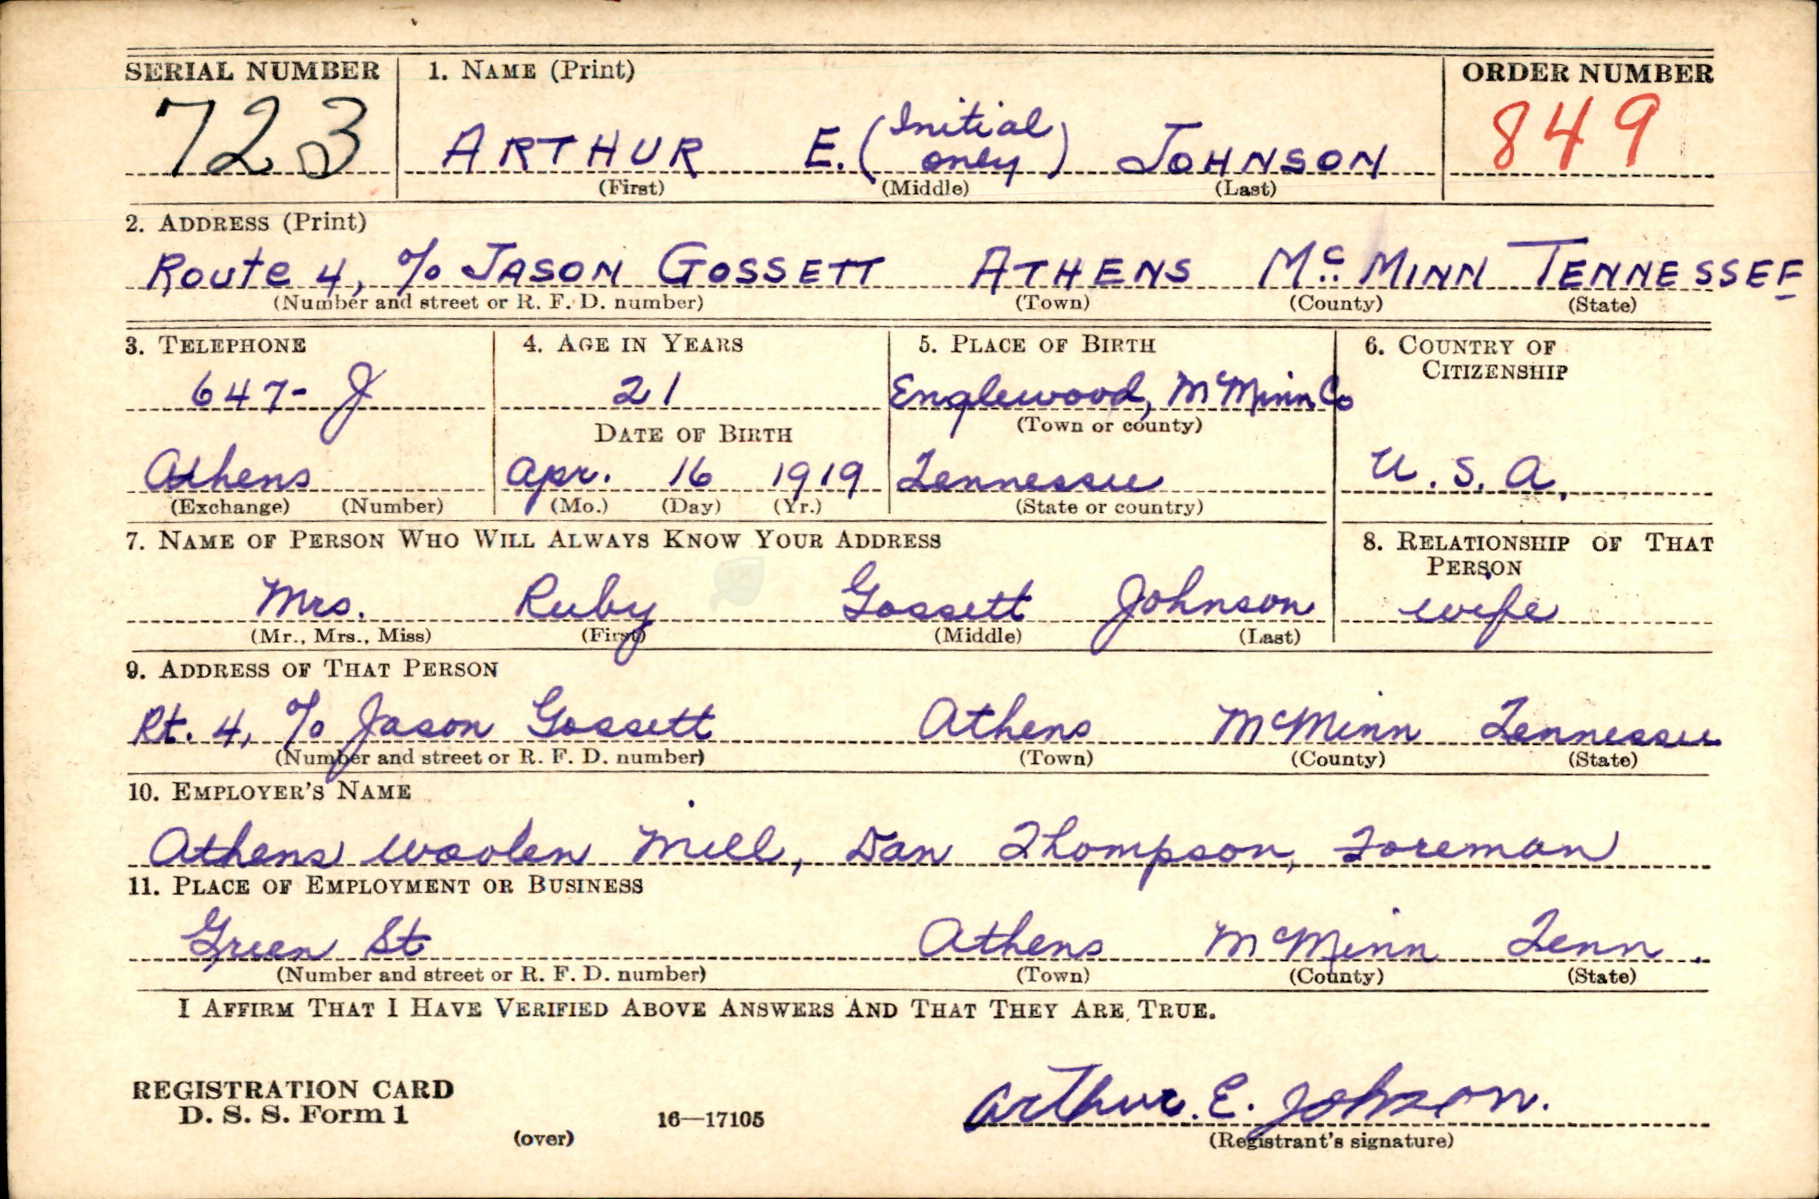 SERIAL NUMBER 1. NAME (Print) ORDER NUMBER
723 ARTHUR E. (Initial only) JOHNSON 849
(First) (Middle) (Last)
2. ADDRESS (Print)
Route 4, c/o JASON GOSSETT ATHENS Mc MINN TENNESSEE
(Number and street or R. F. D. number) (Town) (County) (State)
3. TELEPHONE 4. AGE IN YEARS 5. PLACE OF BIRTH 6. COUNTRY OF
CITIZENSHIP
647-J 21 Englewood, McMinn Co
DATE OF BIRTH (Town or county)
Athens Apr. 16 1919 Tennessee U.S.A.
(Exchange) (Number) (Mo.) (Day) (Yr.) (State or country)
7. NAME OF PERSON WHO WILL ALWAYS KNOW YOUR ADDRESS 8. RELATIONSHIP OF THAT
PERSON
Mrs. Ruby Gossett Johnson wife
(Mr., Mrs., Miss) (First) (Middle) (Last)
9. ADDRESS OF THAT PERSON
Rt. 4, c/o Jason Gossett Athens McMinn Tennessee
(Number and street or R. F. D. number) (Town) (County) (State)
10. EMPLOYER'S NAME
Athens Woolen Mill, Dan Thompson, Foreman
11. PLACE OF EMPLOYMENT OR BUSINESS
Green St Athens McMinn Tenn.
(Number and street or R. F. D. number) (Town) (County) (State)
I AFFIRM THAT I HAVE VERIFIED ABOVE ANSWERS AND THAT THEY ARE TRUE.
REGISTRATION CARD
D. S. S. Form 1 16—17105 Arthur. E. Johnson.
(over) (Registrant's signature)